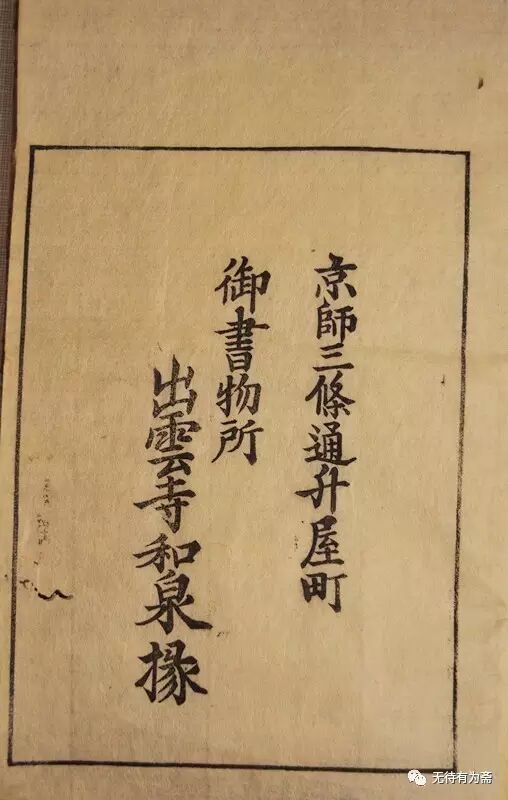 京師三條通升屋町
御書物所
出雲寺和泉掾
无待有为斋